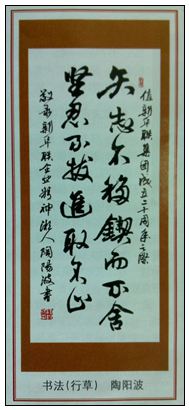 值新华联集团成立二十周年之际
矢志不移锲而不舍
坚忍不拔進取不止
敬录新华联企业精神湘人陶陽波書
书法(行草) 陶阳波